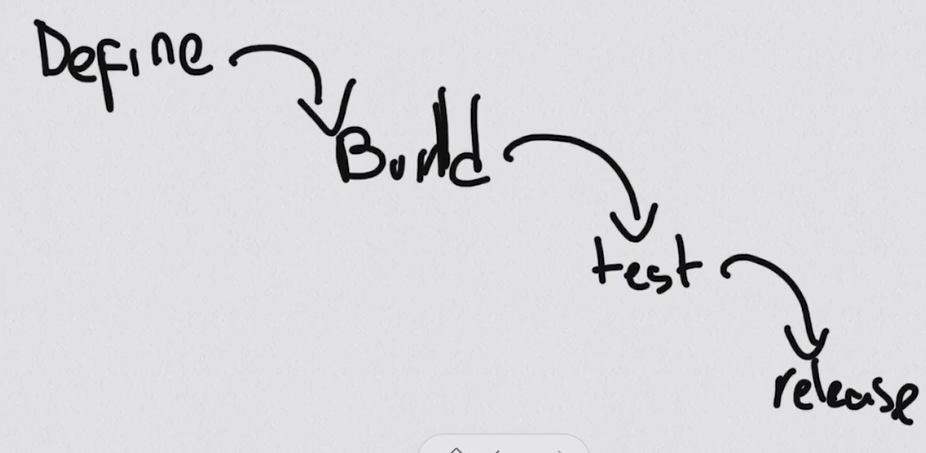 Define
Build
test
release